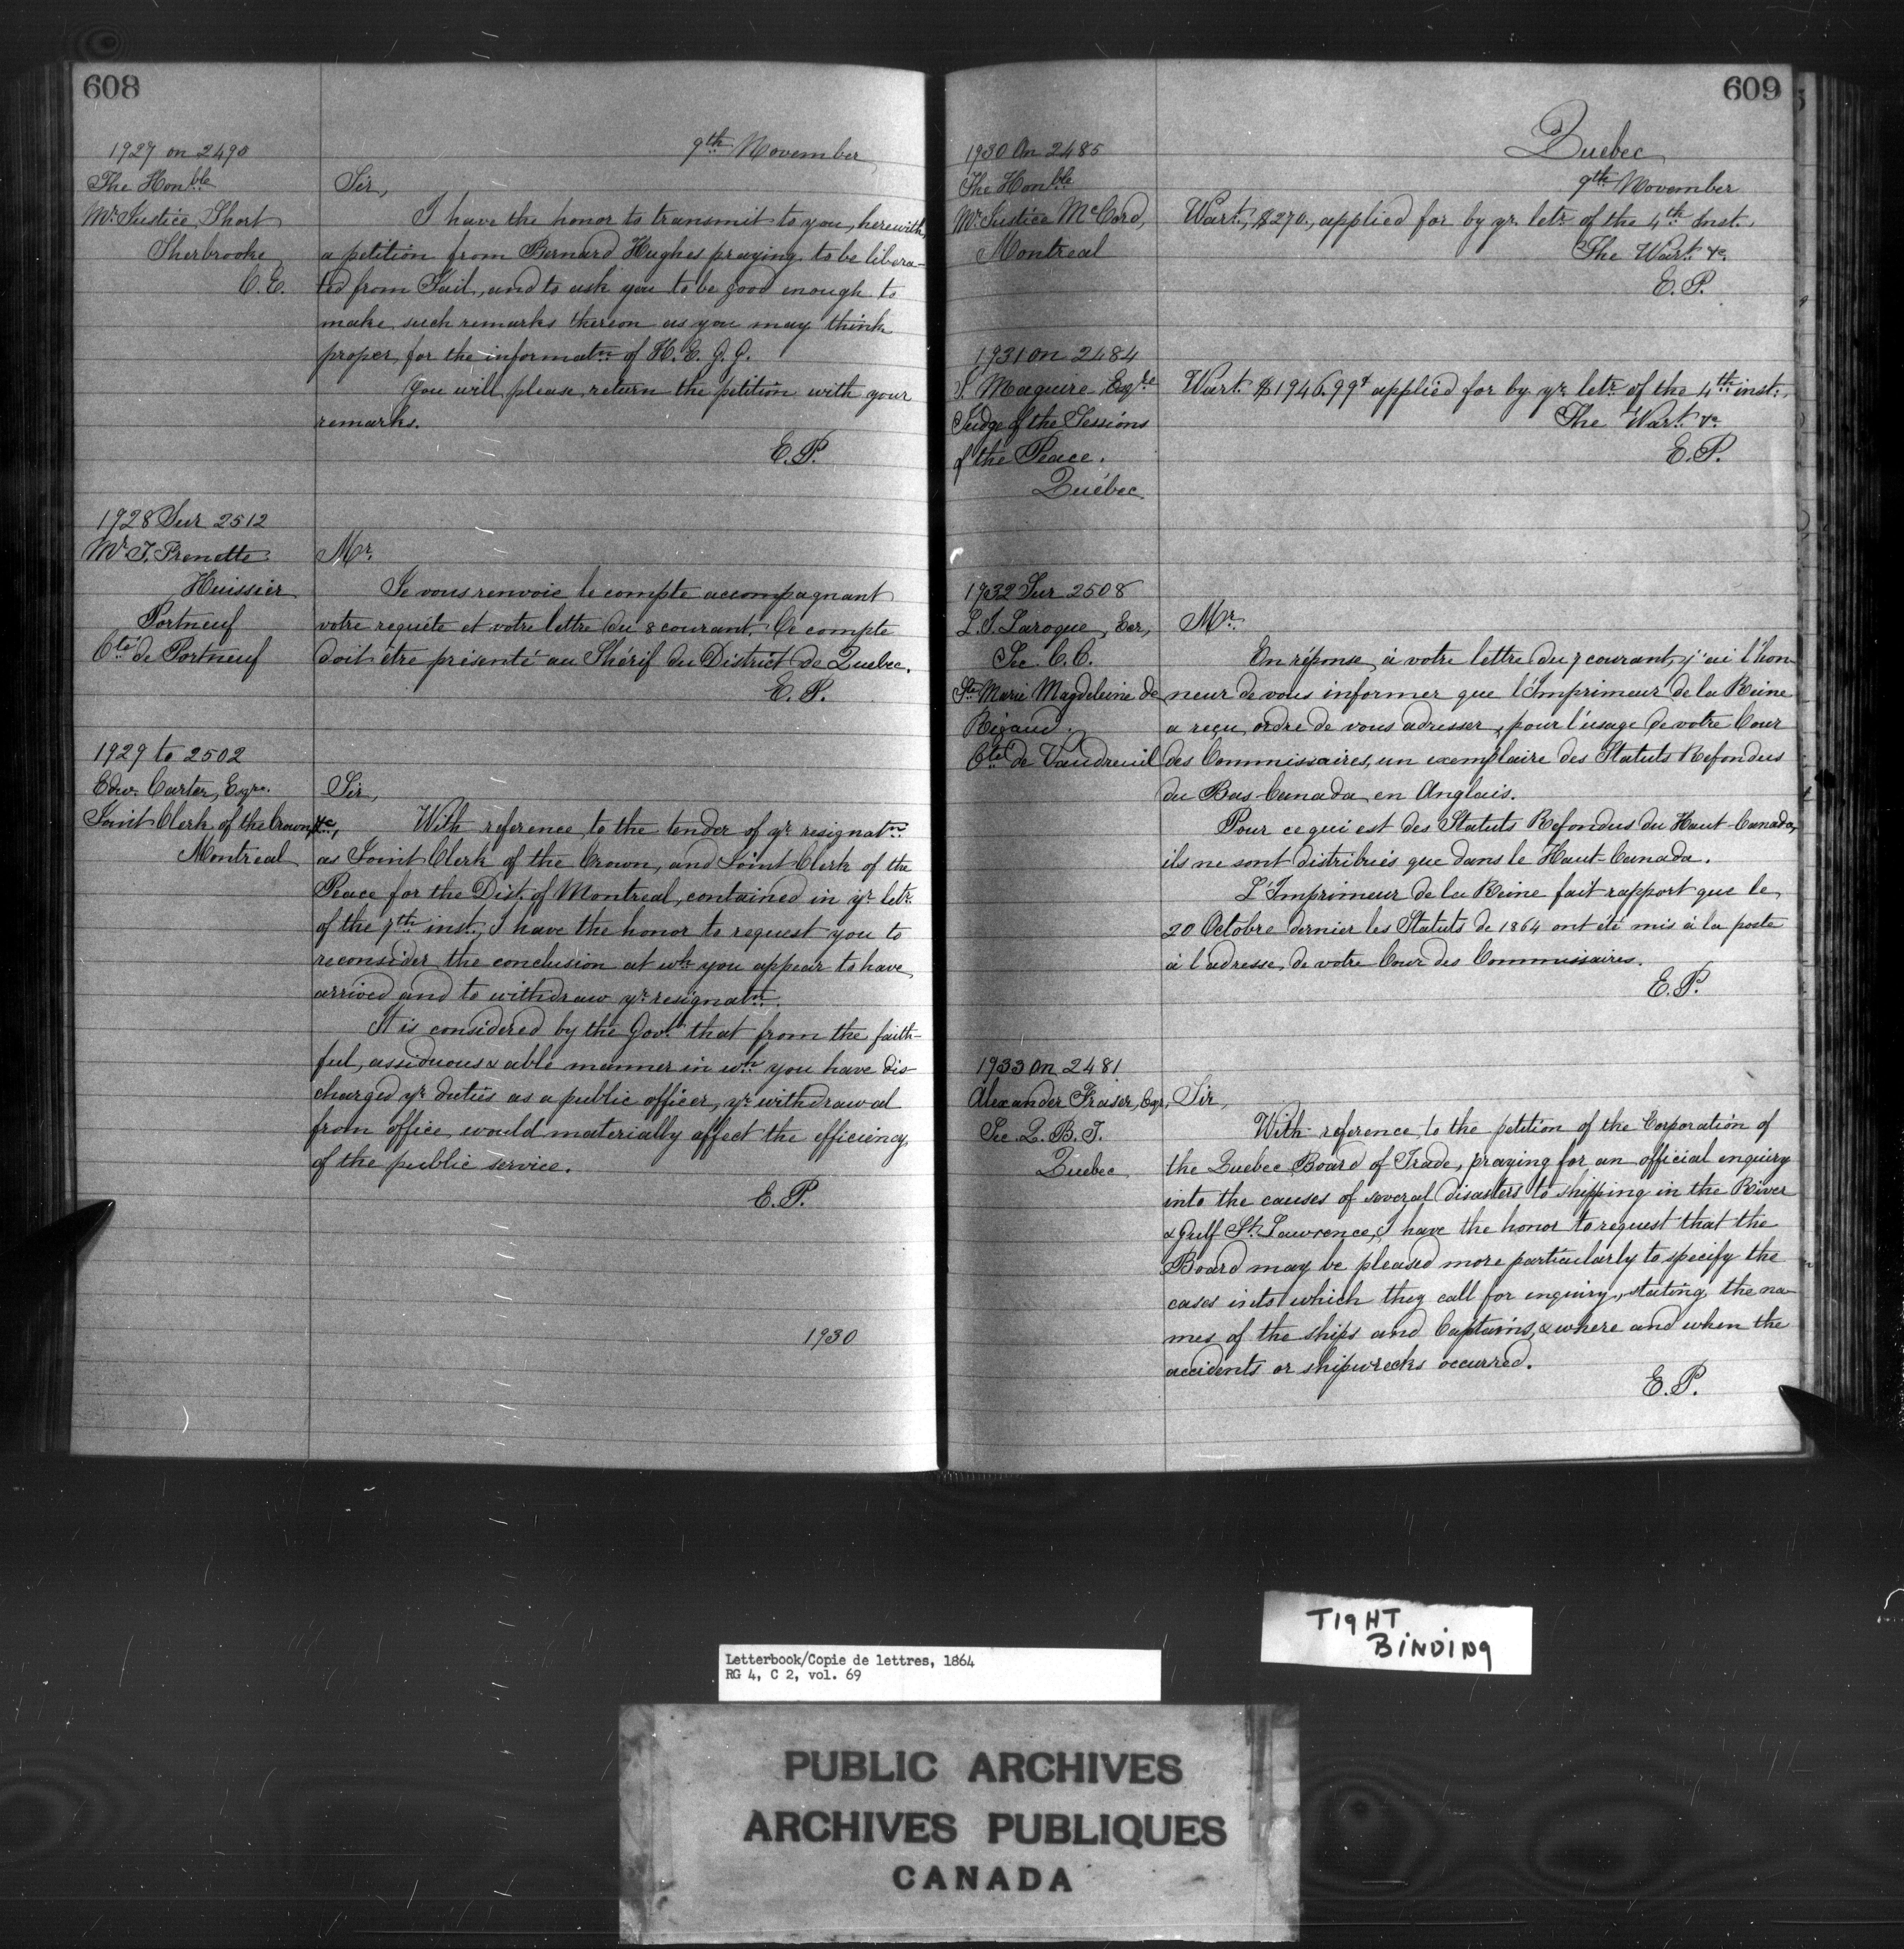 608
9th November
1927 on 2490
The Honble
Mr. Justice Short
Sherbrooke
C.E.
Sir,
I have the honor to transmit to you, herewith,
a petition from Bernard Hughes praying to be libera-
ted from Jail, and to ask you to be good enough to
make such remarks thereon as you may think
proper, for the informatn of H. E. G. G.
You will please return the petition with your
remarks.
E. P.
1928 Sur 2512
Mr. J. Frenette
Huissier
Portneuf
Cté de Portneuf
Mr.
Je vous renvoie le compte accompagnant
votre requête et votre lettre du 8 courant. Ce compte
doit être présenté au Shérif du District de Quebec.
E. P.
1929 to 2502
Edw. Carter, Eqre.
Joint Clerk of the Crown, &c,
Montreal
Sir,
With reference to the tender of yr. resignatn
as Joint Clerk of the Crown, and Joint Clerk of the
Peace for the Dist. of Montreal, contained in yr. letr.
of the 7th inst., I have the honor to request you to
reconsider the conclusion at wh. you appear to have
arrived and to withdraw yr. resignatn.
It is considered by the Govt. that from the faith-
ful, assiduous & able manner in wh. you have dis-
charged yr. duties as a public officer, yr. withdrawal
from office would materially affect the efficiency
of the public service.
E. P.
1930
609
Quebec
9th November
1930 On 2485
The Honble
Mr. Justice McCord,
Montreal
Wart., $270., applied for by yr. letr. of the 4th Inst.
The Wart. &c.
E. P.
1931 on 2484
J. Maguire Esqre
Judge of the Sessions
of the Peace.
Québec.
Wart. $1946.99¢ applied for by yr. letr. of the 4th inst.
The Wart. &c.
E. P.
1932 Sur 2508
L. J. Laroque, Ecr,
Sec. C. C.
Ste Marie Magdeleine de
Rigaud.
Cté de Vaudreuil
Mr.
En réponse à votre lettre du 7 courant, j'ai l'hon-
neur de vous informer que l'Imprimeur de la Reine
a reçu ordre de vous adresser, pour l'usage de votre Cour
des Commissaires, un exemplaire des Statuts Refondus
du Bas-Canada en Anglais.
Pour ce qui est des Statuts Refondus du Haut-Canada,
ils ne sont distribués que dans le Haut-Canada.
L'Imprimeur de la Reine fait rapport que le
20 Octobre dernier les Statuts de 1864 ont été mis à la poste
à l'adresse de votre Cour des Commissaires.
E. P.
1933 On 2481
Alexander Fraser, Eqr.
Sec. Q. B. T.
Quebec
Sir,
With reference to the petition of the Corporation of
the Quebec Board of Trade, praying for an official enquiry
into the causes of several disasters to shipping in the River
& Gulf St. Lawrence, I have the honor to request that the
Board may be pleased more particularly to specify the
cases into which they call for enquiry, stating the na-
mes of the ships and Captains, & where and when the
accidents or shipwrecks occurred.
E. P.
TIGHT
BINDING
Letterbook/Copie de lettres, 1864
RG 4, C 2, vol. 69
PUBLIC ARCHIVES
ARCHIVES PUBLIQUES
CANADA